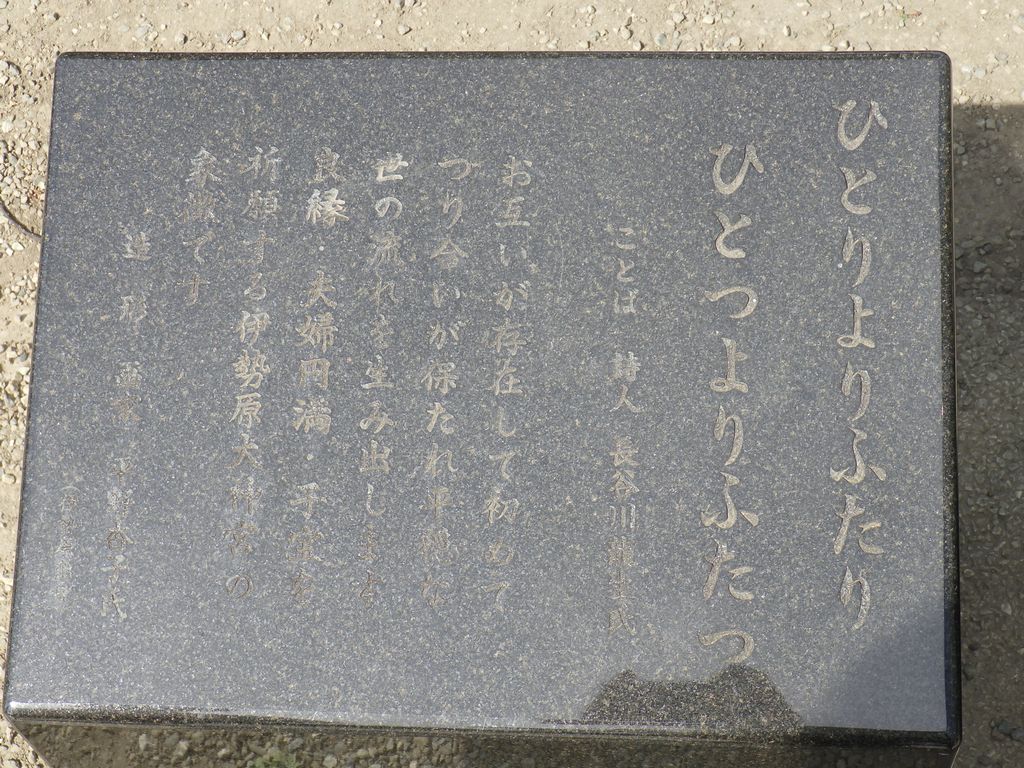 ひとりよりふたり
ひとつよりふたつ
ことば 詩人 長谷川 氏
お互いが存在して初めて
つり合いが保たれ平穏な
世の流れを生み出しますよ
良縁・夫婦円満・子宝を
祈願する伊勢原大神宮の
象徴です
造形 画家 子氏